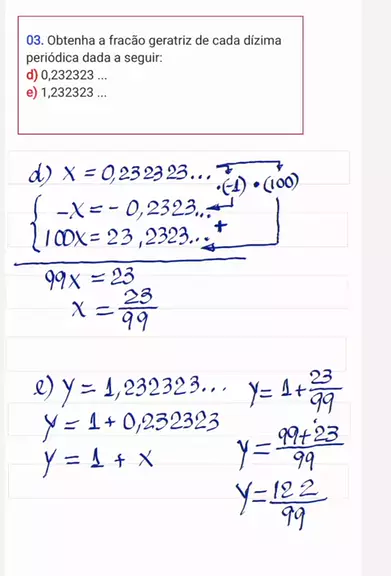 03. Obtenha a fracão geratriz de cada dízima
periódica dada a seguir:
d) 0,232323 ...
e) 1,232323 ...
d) x = 0,232323... ·(-1) ·(100)
-x = - 0,2323...
100x = 23,2323... +
99x = 23
x = 23/99
e) y = 1,232323...
y = 1 + 0,232323
y = 1 + x
y = 1 + 23/99
y = 99+23/99
y = 122/99